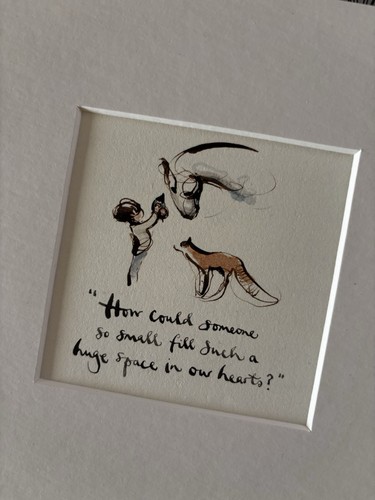 "How could someone
so small fill such a
huge space in our hearts?"